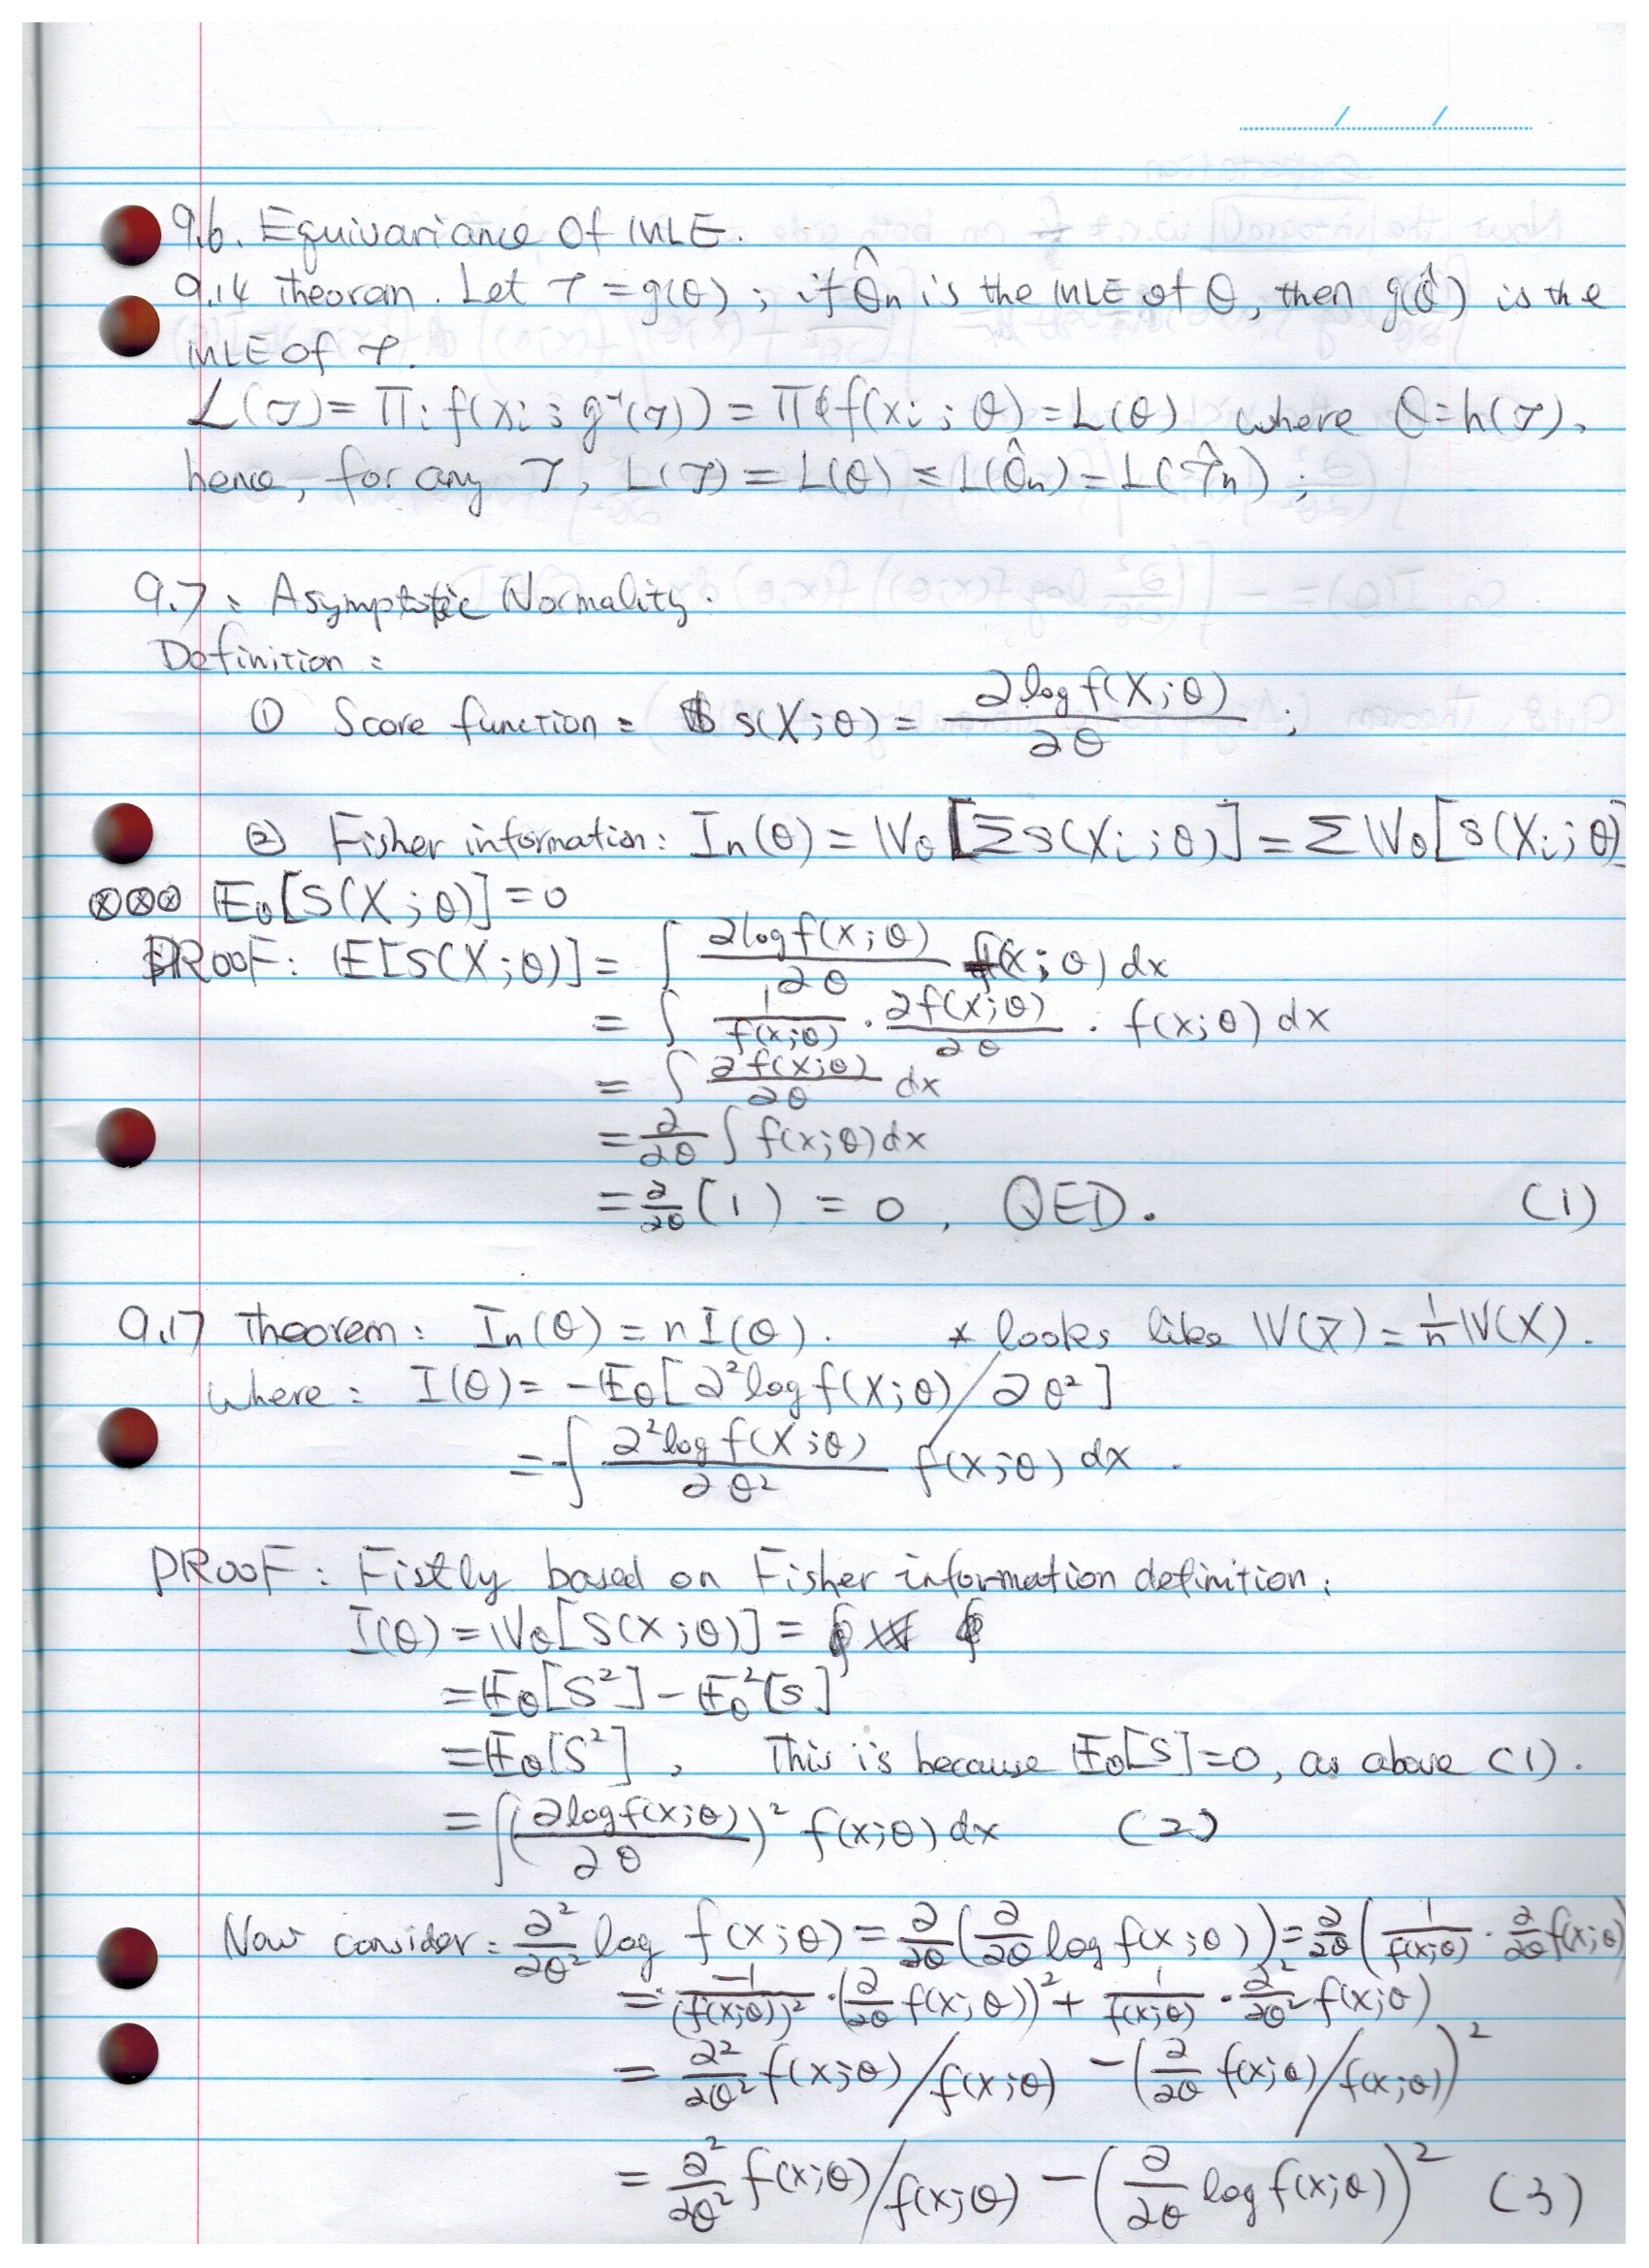 9.6. Equivariance Of MLE.
9.14 Theorem. Let τ = g(θ) ; if θ̂n is the MLE of θ, then g(θ̂) is the
MLE of τ.
L(τ) = Πi f(xi ; g⁻¹(τ)) = Π f(xi ; θ) = L(θ) where θ = h(τ),
hence, for any τ, L(τ) = L(θ) ≤ L(θ̂n) = L(τ̂n) ;
9.7 : Asymptotic Normality.
Definition :
① Score function : s(X;θ) = ∂logf(X;θ) / ∂θ ;
② Fisher information: In(θ) = Vθ [Σs(Xi;θ)] = Σ Vθ[s(Xi;θ)
⊗⊗⊗ Eθ[S(X;θ)] = 0
PROOF: E[S(X;θ)] = ∫ ∂logf(x;θ)/∂θ f(x;θ) dx
= ∫ 1/f(x;θ) · ∂f(x;θ)/∂θ · f(x;θ) dx
= ∫ ∂f(x;θ)/∂θ dx
= ∂/∂θ ∫ f(x;θ)dx
= ∂/∂θ (1) = 0, QED. (1)
9.17 Theorem: In(θ) = nI(θ). * looks like V(x̄) = 1/n V(X).
where : I(θ) = -Eθ[∂²logf(X;θ)/∂θ²]
= -∫ ∂²logf(X;θ)/∂θ² f(x;θ) dx .
PROOF : Fistly based on Fisher information definition:
I(θ) = Vθ[S(X;θ)] =
= Eθ[S²] - Eθ²[S]
= Eθ[S²] , This is because Eθ[S]=0, as above (1).
= ∫(∂logf(x;θ)/∂θ)² f(x;θ) dx (2)
Now consider: ∂²/∂θ² log f(x;θ) = ∂/∂θ(∂/∂θ log f(x;θ)) = ∂/∂θ(1/f(x;θ) · ∂/∂θ f(x;θ)
= -1/(f(x;θ))² · (∂/∂θ f(x;θ))² + 1/f(x;θ) · ∂²/∂θ² f(x;θ)
= ∂²/∂θ² f(x;θ)/f(x;θ) - (∂/∂θ f(x;θ)/f(x;θ))²
= ∂²/∂θ² f(x;θ)/f(x;θ) - (∂/∂θ log f(x;θ))² (3)